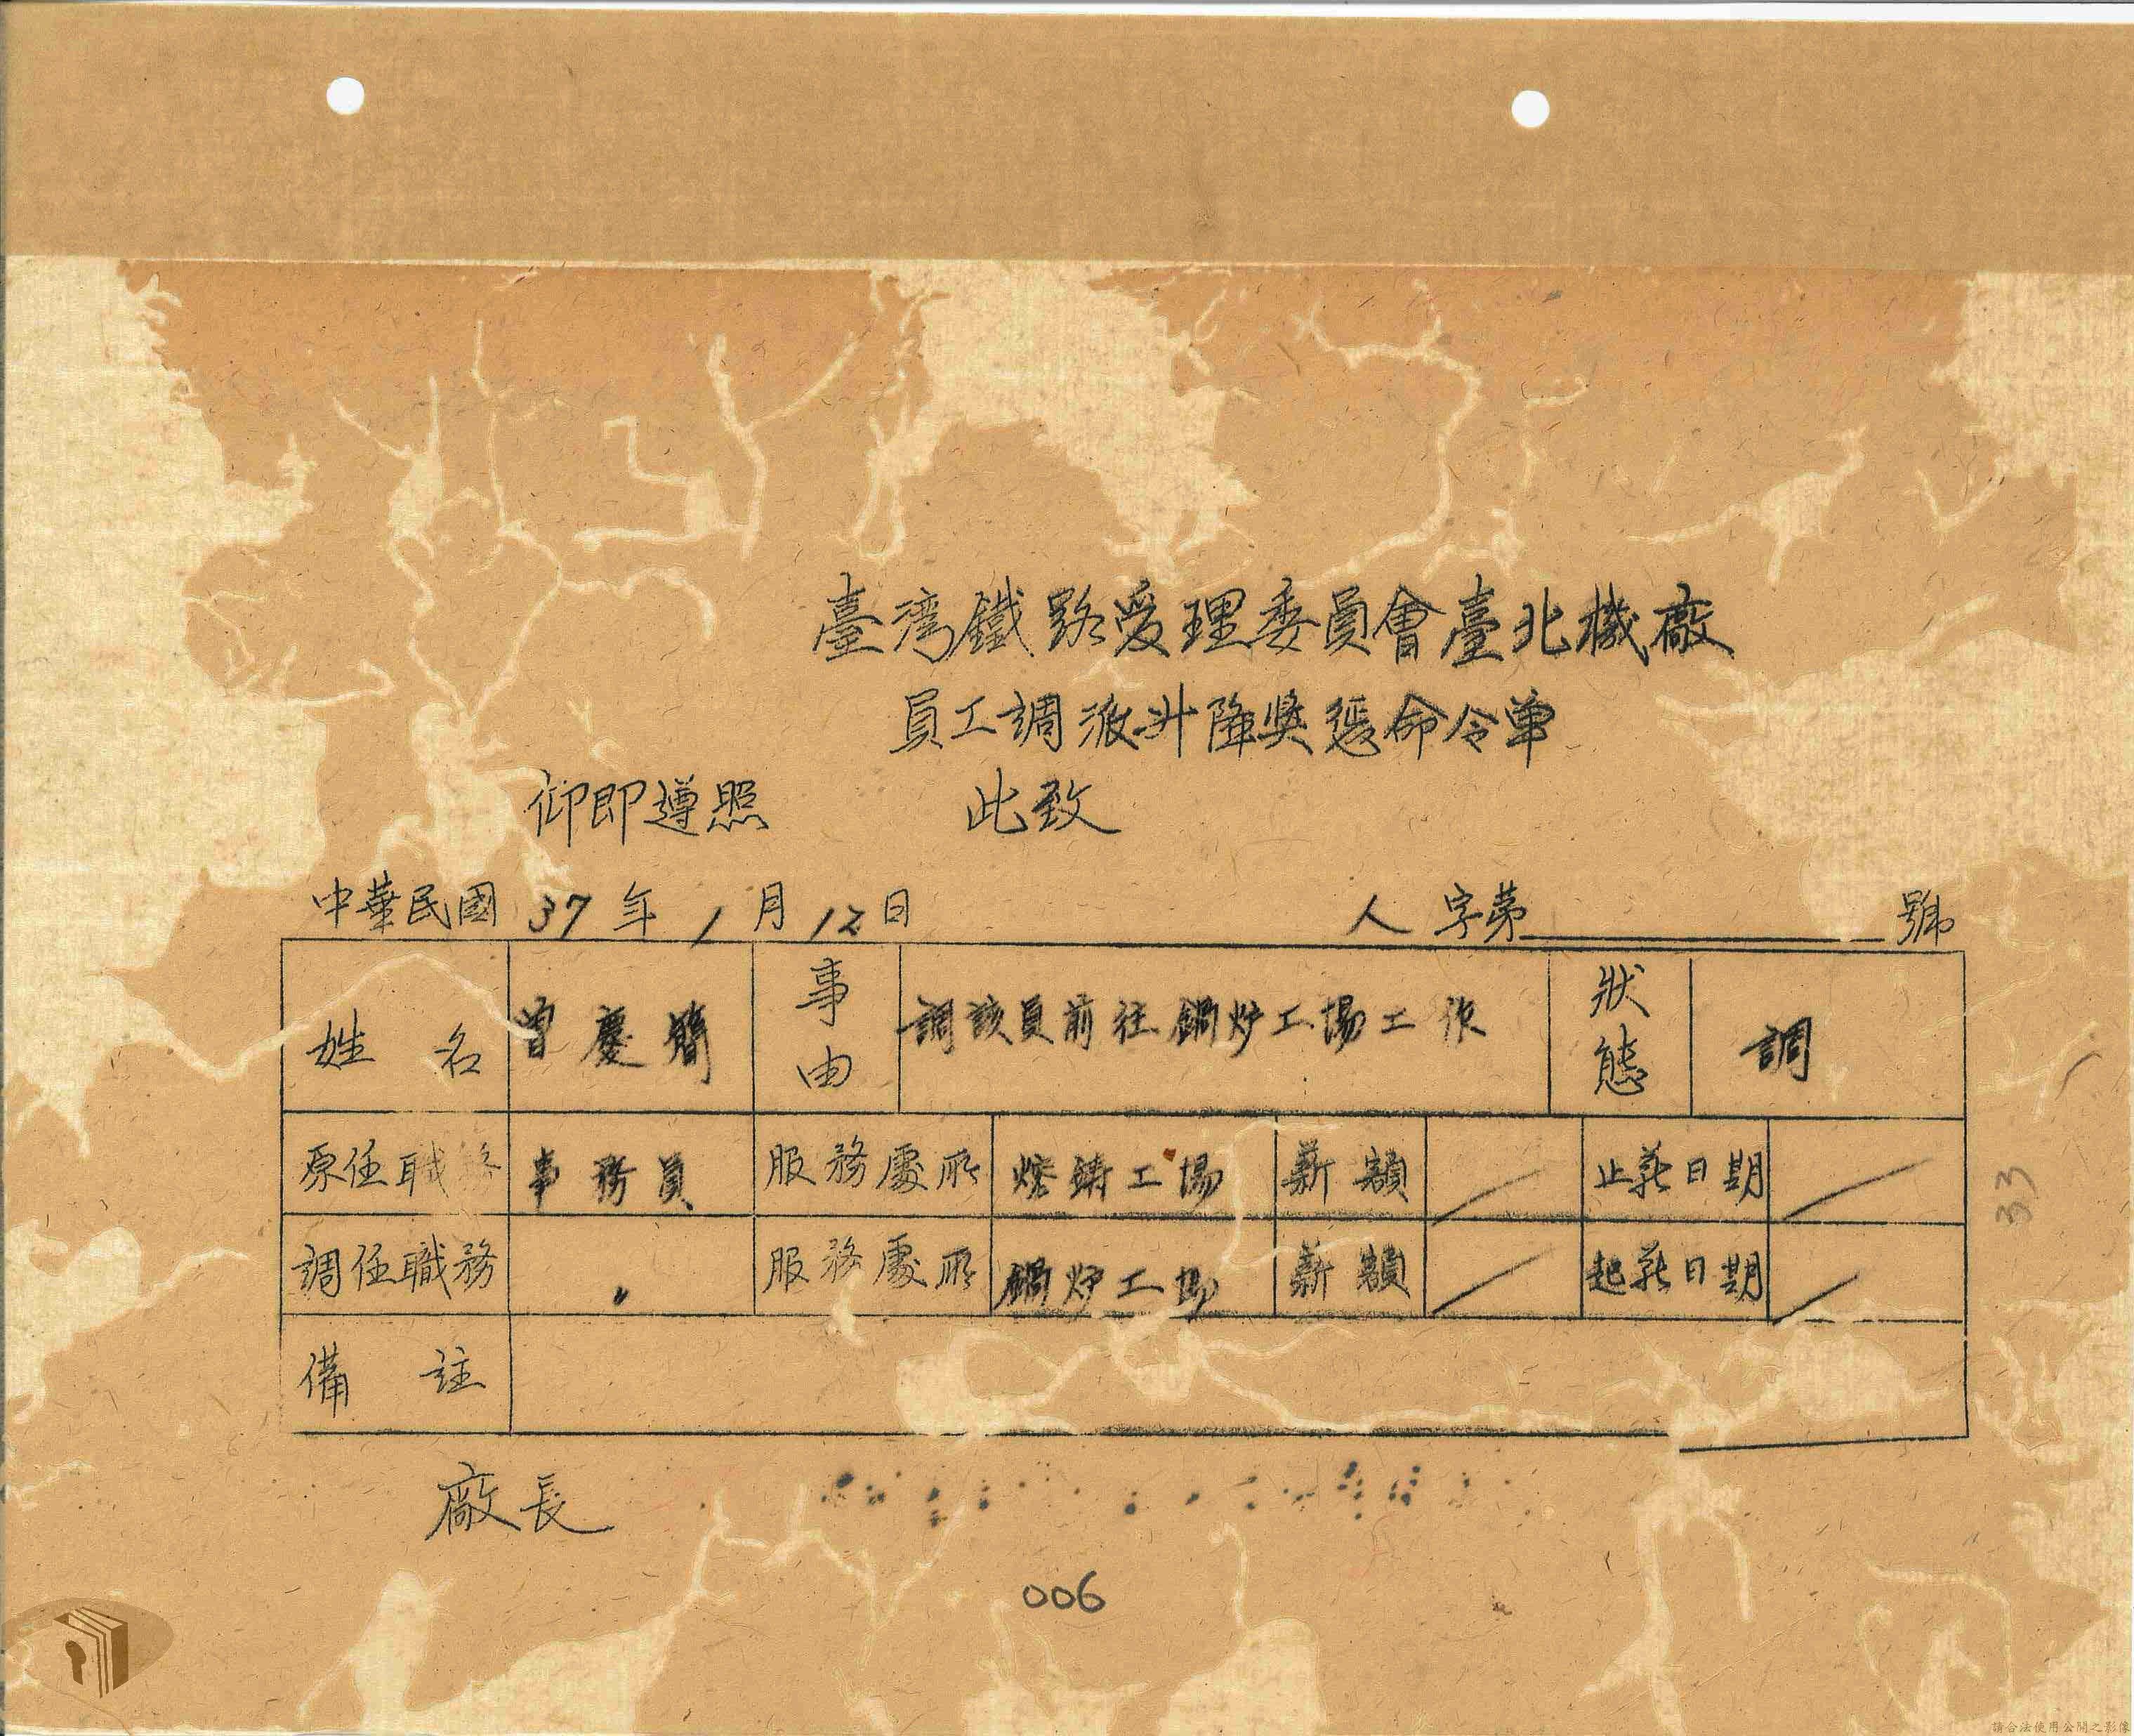 臺灣鐵路受理委員會臺北機廠
員工調派升降獎懲命令單
仰即遵照 此致
中華民國 37 年 1 月 12 日 人 字第 號
姓名 曾慶 事由 調該員前往鍋炉工場工作 狀態 調
原任職務 事務員 服務處所 熔鑄工場 薪額 止薪日期
調任職務 〃 服務處所 鍋炉工場 薪額 起薪日期
備註
廠長
006
33
請合法使用公開之影像